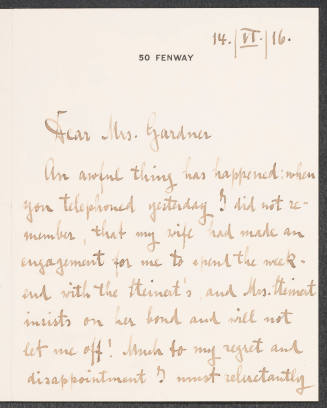 14. | VI. | 16.
50 FENWAY
Dear Mrs. Gardner
An awful thing has happened: when
you telephoned yesterday I did not re-
member, that my wife had made an
engagement for me to spend the week-
end with the Steinert's, and Mrs. Steinert
insists on her bond and will not
let me off! Much to my regret and
disappointment I must reluctantly